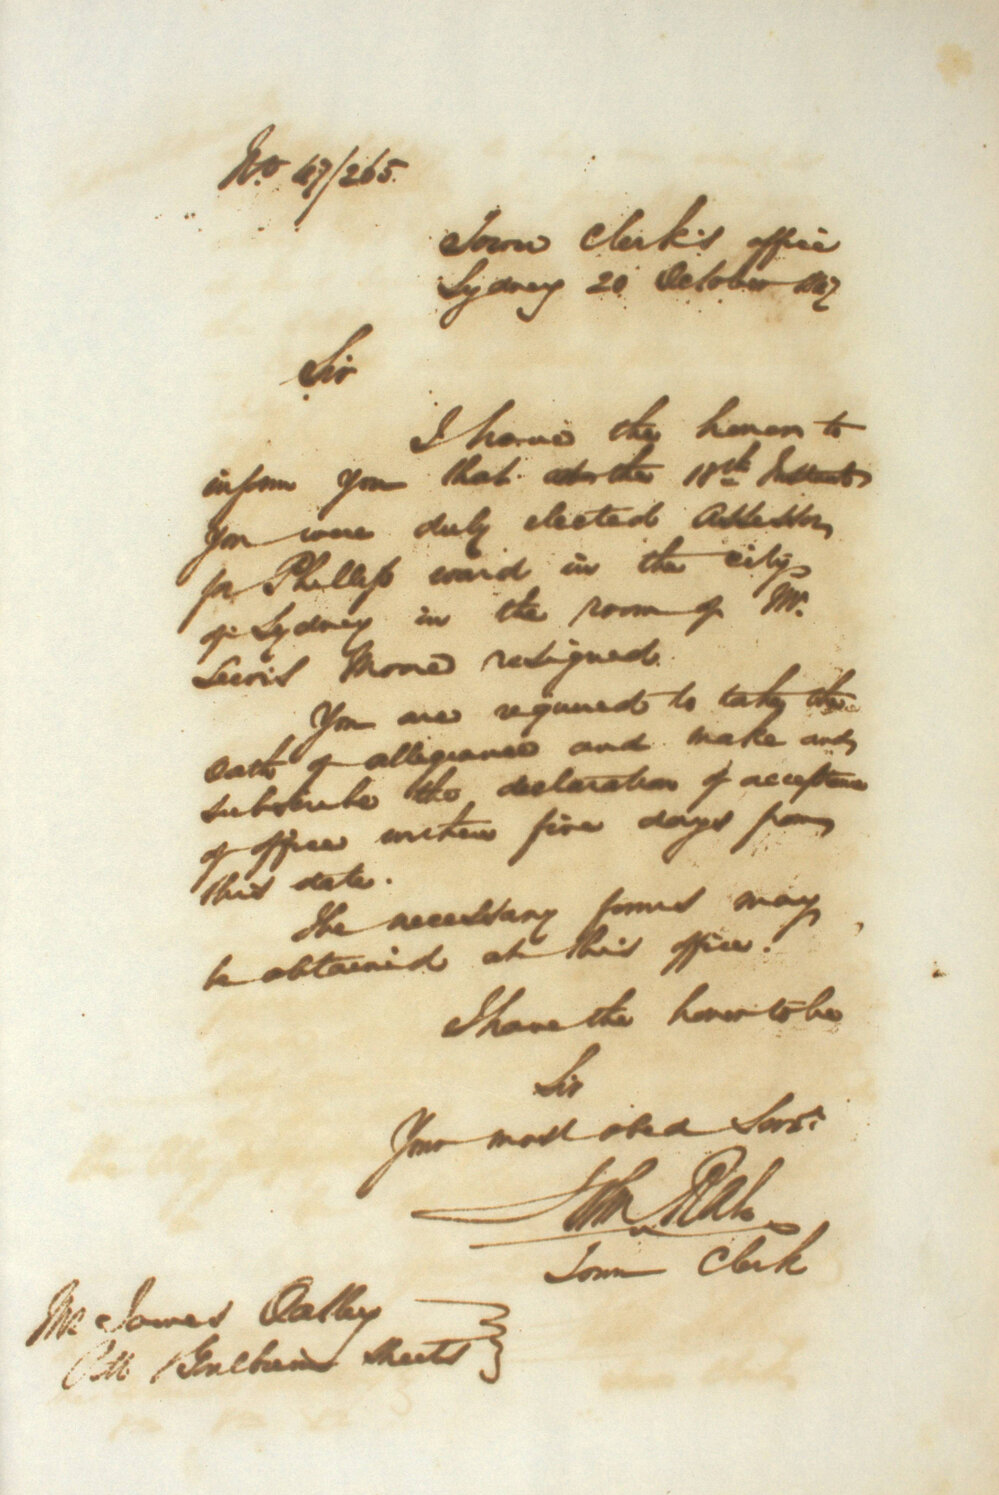 No. 47/265.
Town Clerk's office
Sydney 20 October 1847
Sir
I have the honor to
inform you that on the 18th Instant
you were duly elected Assessor
for Phillip ward in the city
of Sydney in the room of Mr.
Lewis Moore resigned.
You are required to take the
Oath of allegiance and make and
subscribe the declaration of acceptance
of office within five days from
this date.
The necessary forms may
be obtained at this office.
I have the honor to be
Sir
Your most obed Servt.
John
Town Clerk
Mr James Oatley
Pitt Goulburn Streets